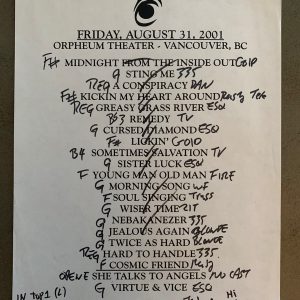 FRIDAY, AUGUST 31, 2001
ORPHEUM THEATER - VANCOUVER, BC
F# MIDNIGHT FROM THE INSIDE OUT GOLD
G STING ME 335
REG A CONSPIRACY DAN
F# KICKIN MY HEART AROUND
REG GREASY GRASS RIVER ESQ
REMEDY TV
G CURSED DIAMOND ESQ
F# LICKIN' GOLD
SOMETIMES SALVATION TV
G SISTER LUCK ESQ
F YOUNG MAN OLD MAN FIRE
G MORNING SONG
F SOUL SINGING TRUSS
G WISER TIME ZIT
G NEBAKANEZER 335
G JEALOUS AGAIN BLONDE
G TWICE AS HARD BLONDE
REG HARD TO HANDLE 335
F COSMIC FRIEND
OPEN E SHE TALKS TO ANGELS NO CAST
G VIRTUE & VICE ESQ